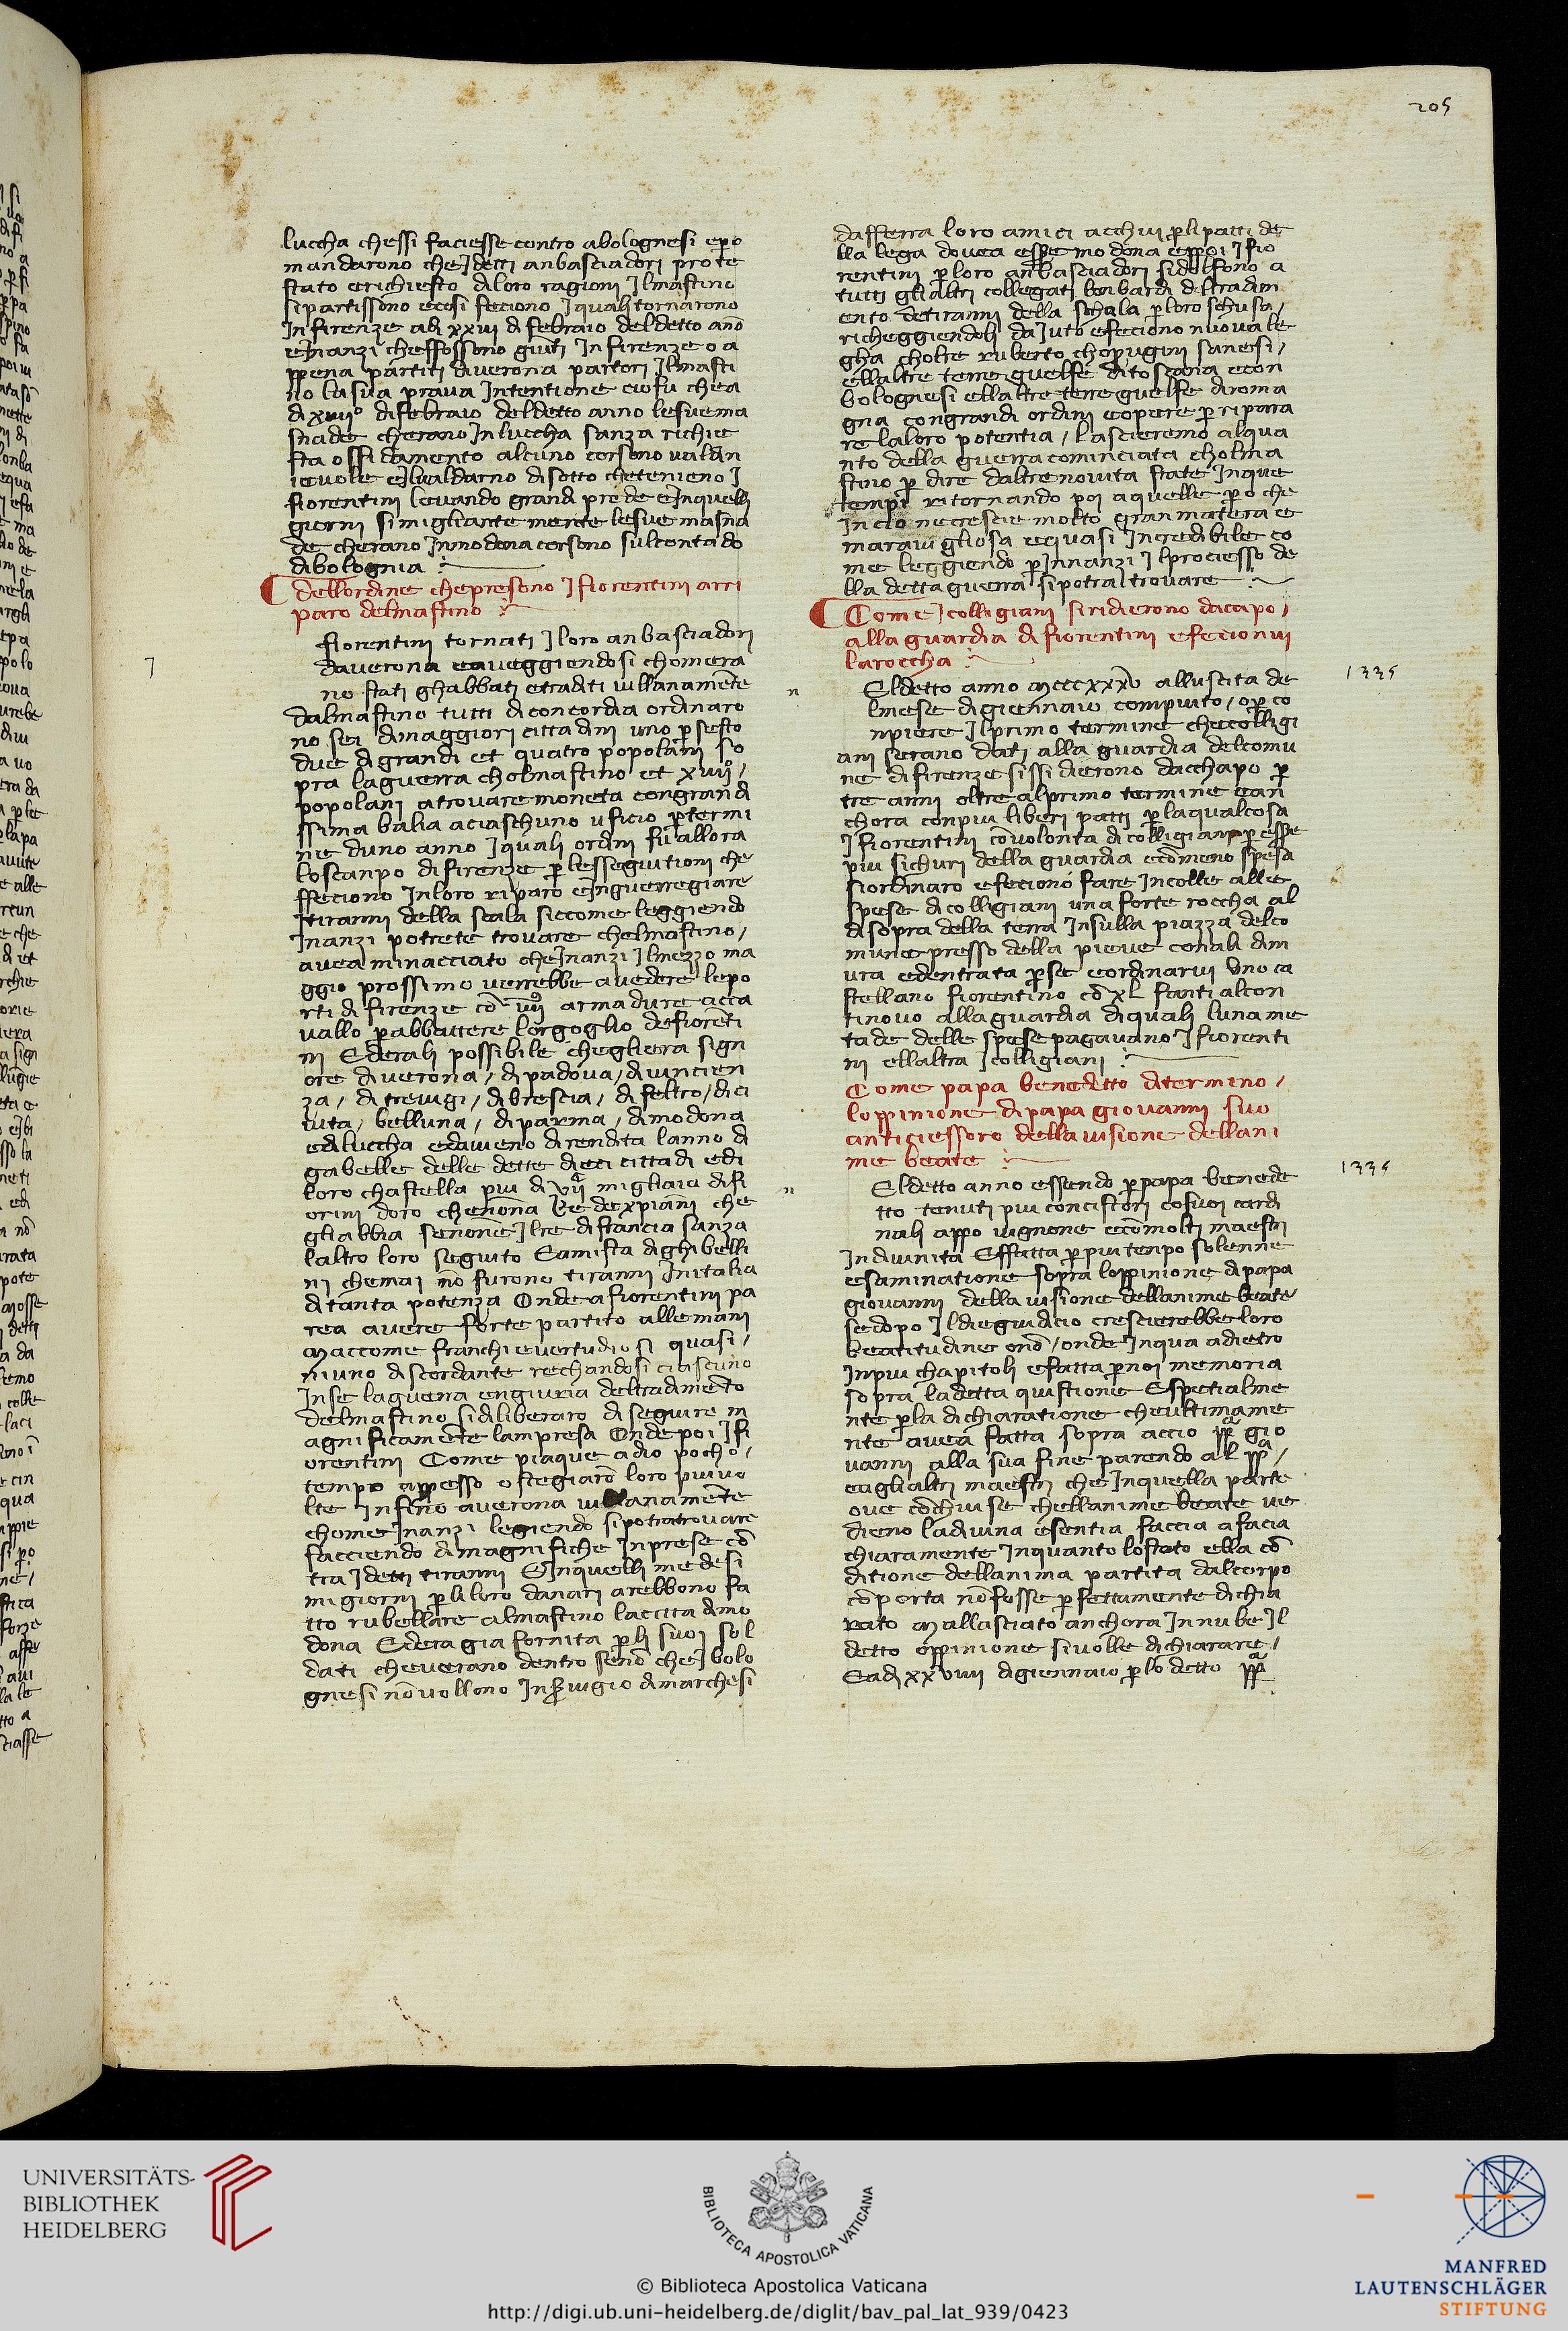 205
luccha chessi faciesse contro abolognesi epero
mandarono che J detti anbasciadori prote
stato erichiesto di loro ragioni Jlmastino
sipartissino ecosi feciono Jquali tornarono
Infirenze adi xxiii di febraio deldetto anno
eJnanzi cheffossono giunti Infirenze o a
ppena partiti diverona partori Jlmasti
no lasua prava Jntentione ciofu chea
di xviiiº difebraio deldetto anno lesuema
snade cherano Jnluccha sanza richie
sta ossidamento alcuno corsono valdin
ievole eJlvaldarno disotto chetenieno J
fiorentini levando grandi prede eJnquelli
giorni simigliantemente lesue masna
de cherano Jnmodona corsono sulcontado
dibolognia
dellordine chepresono J fiorentini arri
paro delmastino
fiorentini tornati J loro anbasciadori
daverona eaveggiendosi chomera
no stati ghabbati etraditi villanamēte
dalmastino tutti diconcordia ordinaro
no sei dimaggiori cittadini uno p sesto
due digrandi et quatro popolani so
pra laguerra cholmastino et xiiii /
popolani atrovare moneta congrandi
ssima balia aciaschuno uficio p termi
ne duno anno Jquali ordini fu allora
loscanpo difirenze p lessegiutioni che
ffeciono Jnloro riparo eJnguerregiare
Jtiranni della scala siccome leggiendo
Jnanzi potrete trovare chelmastino /
avea minacciato cheJnanzi Jlmezzo ma
ggio prossimo verrebbe avedere lepo
rti difirenze cō iiii armadure acca
vallo p abbattere lorgoglio defiorēti
ni Ederali possibile chegliera sign
ore diverona / dipadova / divincien
za / ditrevigi / dibrescia / difeltro / di ci
vita / belluna / diparma / dimodona
ediluccha edavieno direndita lanno di
gabelle delle dette dieci cittadi edi
loro chastella piu di vii migliaia difi
orini doro chenōna Re dexpiani che
gliabbia senone Jlre difrancia sanza
laltro loro seguito Eamista dighibelli
ni chemai nō furono tiranni Jnitalia
ditanta potenza Onde afiorentini pa
rea avere forte partito allemani
maccome franchi evertudiosi quasi /
niuno discordante rechandosi ciascuno
Jnse laguerra engiuria deltradimēto
delmastino sidiliberaro diseguire m
agnificamēte lampresa Onde poi J fi
orentini Come piaque adio pocho /
tempo appesso ostegiarō loro piuvo
lte Jnsino averona villanamēte
chome Jnanzi legiendo sipotratrovare
facciendo dimagnifiche Jnprese cō
tra J detti tiranni EJnquelli medesi
mi giorni p li loro danari arebbono fa
tto rubellare almastino lacitta dimo
dona Edera gia fornita p li suoi sol
dati cheverano dentro senō cheJbolo
gnesi nō vollono Jnservigio dimarchesi
dafferra loro amici acchui p lipatti de
lla lega dovea essere modona eppoi J fio
rentini p loro anbasciadori sidolsono a
tutti glialtri collegati lonbardi deltradim
ento detiranni della schala p loro schusa /
richeggiendoli daJuto efeciono nuova le
gha cholre ruberto choperugini sanesi /
ellaltre terre guelfe ditoscana econ
bolognesi ellaltre terre guelfe diroma
gna congrandi ordini eopere p ripara
re laloro potentia / lascieremo alqua
nto della guerra cominciata cholma
stino p dire daltre novita state Jnque
tempi ritornando poi aquelle pero che
Jncio nececsie molto gran matera e
maravigliosa equasi Jncredibile co
me leggiendo p Jnnanzi Jlprociesso de
lla detta guerra sipotrai trovare
Come J colligiani siridierono dacapo /
alla guardia di fiorentini efecionvi
laroccha
1335
Eldetto anno mcccxxxv alluscita de
lmese digiennaio compiuto / o p co
npiere Jlprimo termine checolligi
ani serano dati alla guardia delcomu
ne difirenze sissi dierono dacchapo p
tre anni oltre alprimo termine ean
chora conpiu liberi patti p laqualcosa
J fiorentini cōvolonta dicolligiani p essere
piu sichuri della guardia ecōmeno spesa
siordinaro efeciono fare Jncolle alle
spese dicolligiani una forte roccha al
disopra della terra Jnsulla piazza delco
mune presso della pieve conali dim
ura edentrata p se eordinarvi uno ca
stellano fiorentino cō xl fanti alcon
tinovo allaguardia diquali luname
tade delle spese pagavano J fiorenti
ni ellaltra J colligiani
Come papa benedetto ditermino /
loppinione dipapa giovanni suo
anticiessoro della visione dellani
me beate
1335
Eldetto anno essendo p papa benede
tto tenuti piu concistori cosuoi cardi
nali appo vignone ecōmolti maestri
Jndivinita Effatta p piu tenpo solenne
esaminatione sopra loppinione dipapa
giovanni della visione dellanime beate
sedopo Jl die giudicio crescierebbe loro
beatitudine onō / onde Jnqua adietro
Jnpiu chapitoli efatta p noi memoria
sopra ladetta quistione Espetialme
nte p la dichiaratione cheultimame
nte avea fatta sopra accio pp gio
vanni alla sua fine parendo al pp /
eaglialtri maestri cheJnquella parte
ove cōchiuse chellanime beate ve
dieno ladivina esentia faccia afacia
chiaramente Jnquanto lostato ella cō
ditione dellanima partita dalcorpo
cōporta nōfosse p fettamente dichia
rato mallasciato anchora Jnnube Jl
detto oppinione sivolle dichiarare /
Eadi xxviiii digiennaio p lo detto pp
UNIVERSITÄTS-
BIBLIOTHEK
HEIDELBERG
BIBLIOTECA APOSTOLICA VATICANA
© Biblioteca Apostolica Vaticana
http://digi.ub.uni-heidelberg.de/diglit/bav_pal_lat_939/0423
MANFRED
LAUTENSCHLÄGER
STIFTUNG